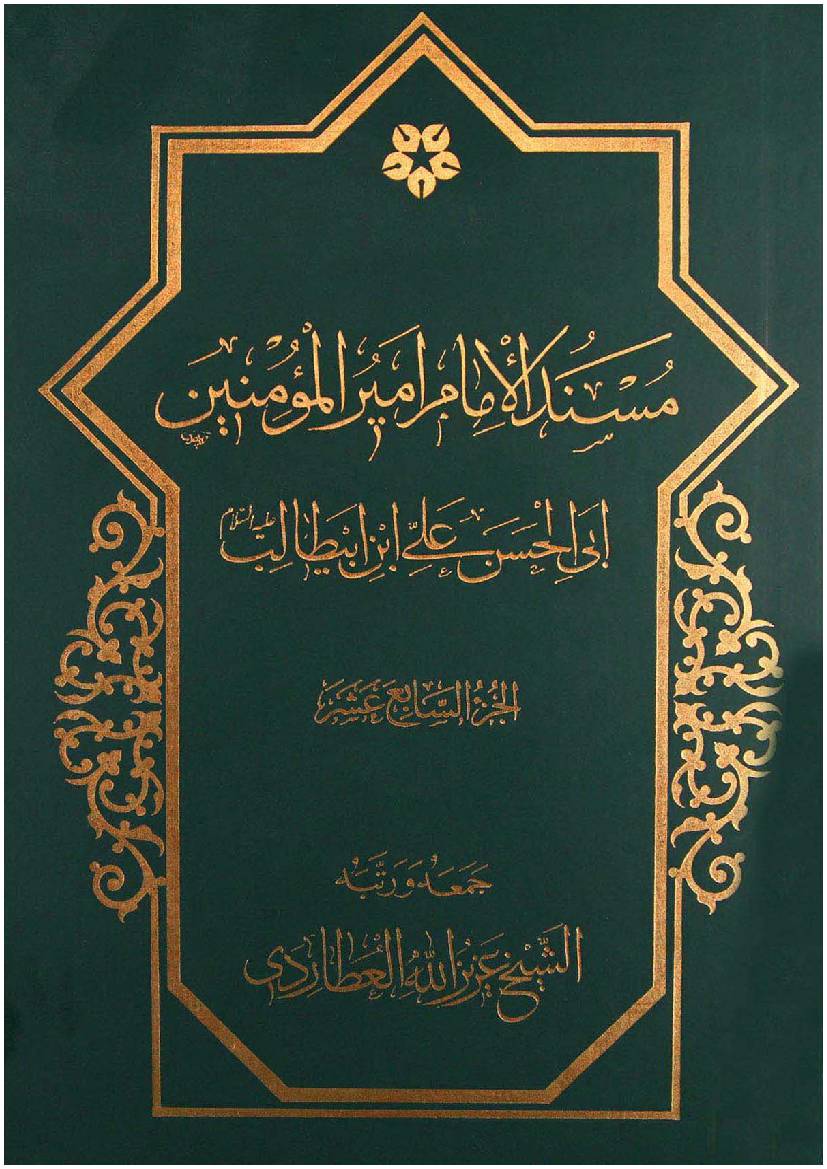 مُسْنَدُ الْإِمَامِ اَمِيرُ الْمُؤْمِنِينَ
اَبِى الْحَسَنِ عَلِىِّ ابْنِ ابيطَالِب عليه السلام
الجُزءُ السَّابِعُ عَشَرَ
جَمَعَهُ وَرَتَّبَهُ
الشَّيْخ عَزيزُ اللهِ العُطارِدى